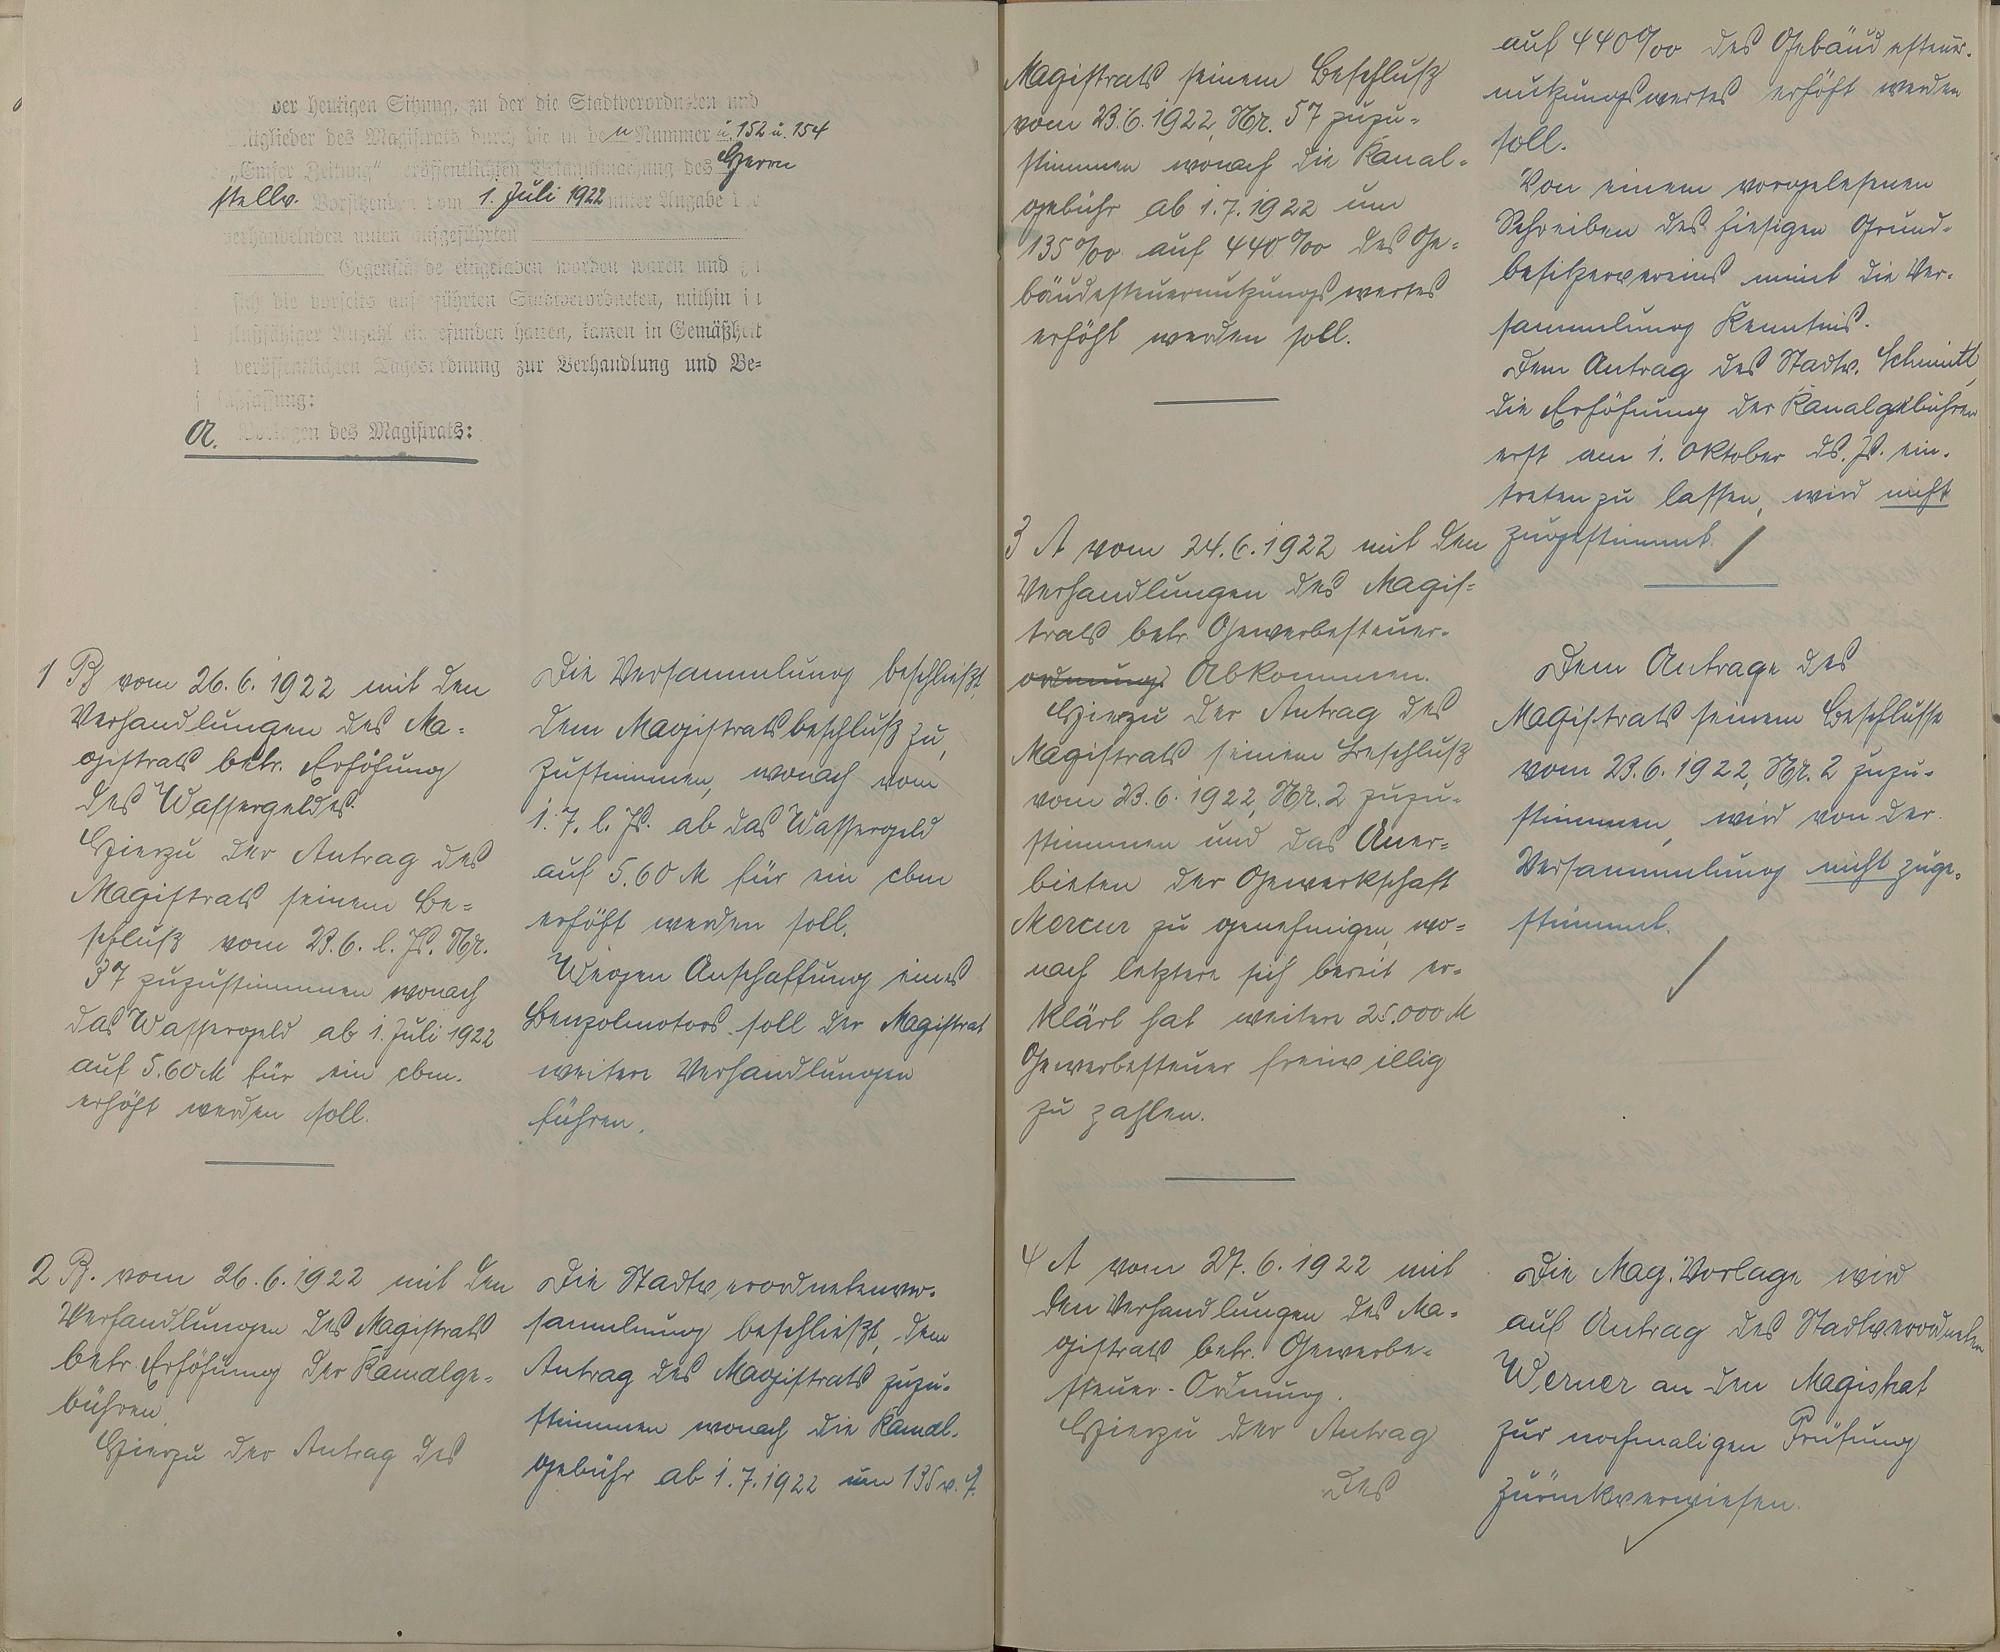 der heutigen Sitzung, zu der die Stadtverordneten und
Mitglieder des Magistrats durch die in den Nummer u. 152 u. 154
"Emser Zeitung" veröffentlichten Bekanntmachung des Herrn
stellv. Vorsitzenden vom 1. Juli 1922 unter Angabe der
verhandelnden unten aufgeführten
Gegenstände eingeladen worden waren und zu
sich die vorseits aufgeführten Stadtverordneten, mithin in
beschlußfähiger Anzahl eingefunden hatten, kamen in Gemäßheit
veröffentlichten Tagesordnung zur Verhandlung und Be-
schlußfassung:
A. Vorlagen des Magistrats:
1 B vom 26.6.1922 mit den
Verhandlungen des Ma-
gistrats betr. Erhöhung
des Wassergeldes.
Hierzu der Antrag des
Magistrats seinem Be-
schluß vom 23.6. l. Js. Nr.
37 zuzustimmen wonach
das Wassergeld ab 1. Juli 1922
auf 5.60 M für ein cbm.
erhöht werden soll.
Die Versammlung beschließt
dem Magistratsbeschluß zu,
zustimmen, wonach vom
1.7. l. Js. ab das Wassergeld
auf 5.60 M für ein cbm
erhöht werden soll.
Wegen Anschaffung eines
Benzolmotors soll der Magistrat
weitere Verhandlungen
führen.
2 B. vom 26.6.1922 mit den
Verhandlungen des Magistrats
betr. Erhöhung der Kanalge-
bühren.
Hierzu der Antrag des
Die Stadtverordnetenver-
sammlung beschließt, dem
Antrag des Magistrats zuzu-
stimmen wonach die Kanal-
gebühr ab 1.7.1922 um 135 v. T.
Magistrats seinem Beschluß
vom 23.6.1922, Nr. 57 zuzu-
stimmen wonach die Kanal-
gebühr ab 1.7.1922 um
135 ‰ auf 440 ‰ des Ge-
bäudesteuernutzungswertes
erhöht werden soll.
auf 440 ‰ des Gebäudesteuer-
nutzungswertes erhöht werden
soll.
Von einem vorgelesenen
Schreiben des hiesigen Grund-
besitzervereins nimt die Ver-
sammlung Kenntnis.
Dem Antrag des Stadtv. Schmitt,
die Erhöhung der Kanalgebühren
erst am 1. Oktober ds. Js. ein-
treten zu lassen, wird nicht
zugestimmt.
3 A vom 24.6.1922 mit den
Verhandlungen des Magis-
trats betr. Gewerbesteuer-
ordnung. Abkommen.
Hierzu der Antrag des
Magistrats seinem Beschluß
vom 23.6.1922, Nr. 2 zuzu-
stimmen und das Aner-
bieten der Gewerkschaft
Mercur zu genehmigen, wo-
nach letztere sich bereit er-
klärt hat weitere 25.000 M
Gewerbesteuer freiwillig
zu zahlen.
Dem Antrage des
Magistrats seinem Beschlusse
vom 23.6.1922, Nr. 2 zuzu-
stimmen, wird von der
Versammlung nicht zuge-
stimmt.
4 A vom 27.6.1922 mit
den Verhandlungen des Ma-
gistrats betr. Gewerbe-
steuer-Ordnung.
Hierzu der Antrag
des
Die Mag. Vorlage wird
auf Antrag des Stadtverordneten
Werner an den Magistrat
zur nochmaligen Prüfung
zurückverwiesen.